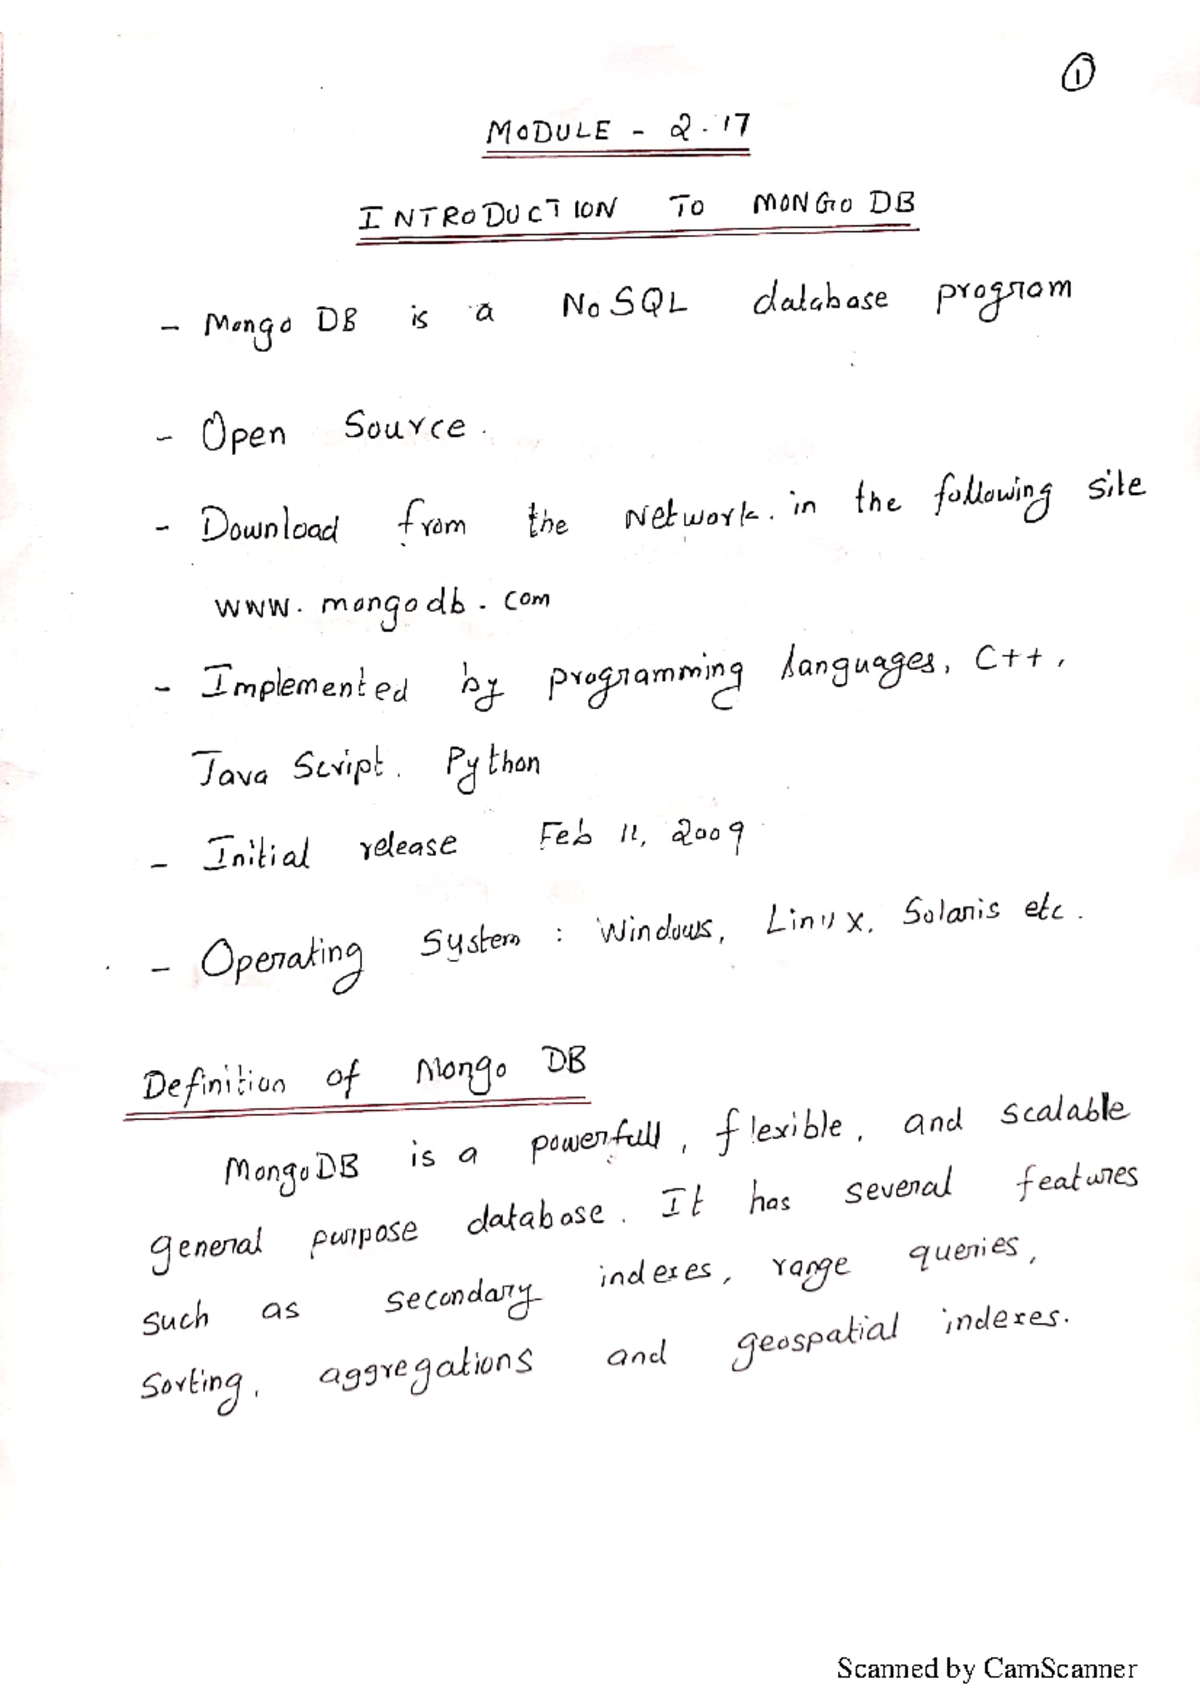 1
MODULE - 2.17
INTRODUCTION TO MONGO DB
- Mongo DB is a NoSQL database program
- Open Source.
- Download from the Network. in the following site
www.mongodb.com
- Implemented by programming languages, C++,
Java Script. Python
- Initial release Feb 11, 2009
- Operating System : Windows, Linux, Solaris etc.
Definition of Mongo DB
MongoDB is a powerfull, flexible, and scalable
general purpose database. It has several features
such as secondary indexes, range queries,
Sorting, aggregations and geospatial indexes.
Scanned by CamScanner